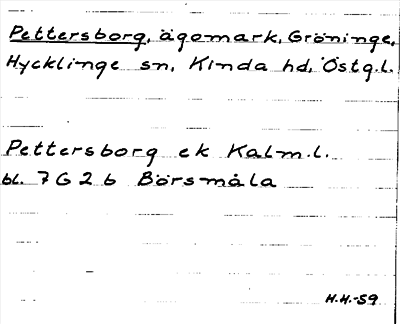 Pettersborg, ägomark, Gröninge,
Hycklinge sn, Kinda hd, Östg.l.
Pettersborg ek Kalm.l.
bl. 7G2b Börsmåla
H.H.-59